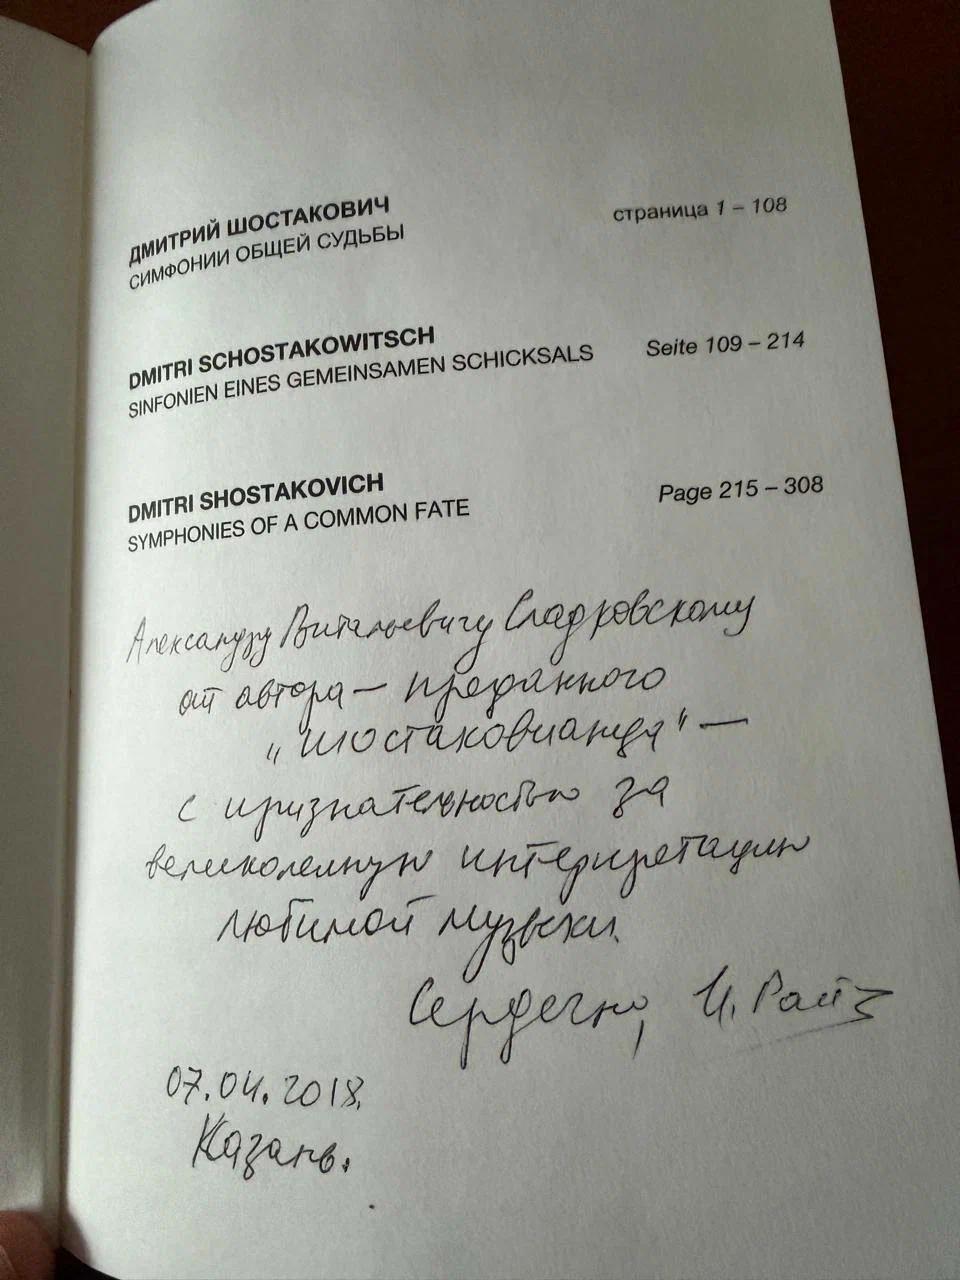 ДМИТРИЙ ШОСТАКОВИЧ
СИМФОНИИ ОБЩЕЙ СУДЬБЫ
страница 1 – 108
DMITRI SCHOSTAKOWITSCH
SINFONIEN EINES GEMEINSAMEN SCHICKSALS
Seite 109 – 214
DMITRI SHOSTAKOVICH
SYMPHONIES OF A COMMON FATE
Page 215 – 308
Александру Витальевичу Сладковскому
от автора — преданного
„шостаковианца" —
с признательностью за
великолепную интерпретацию
любимой музыки.
Сердечно, И. Райз
07.04.2018.
Казань.